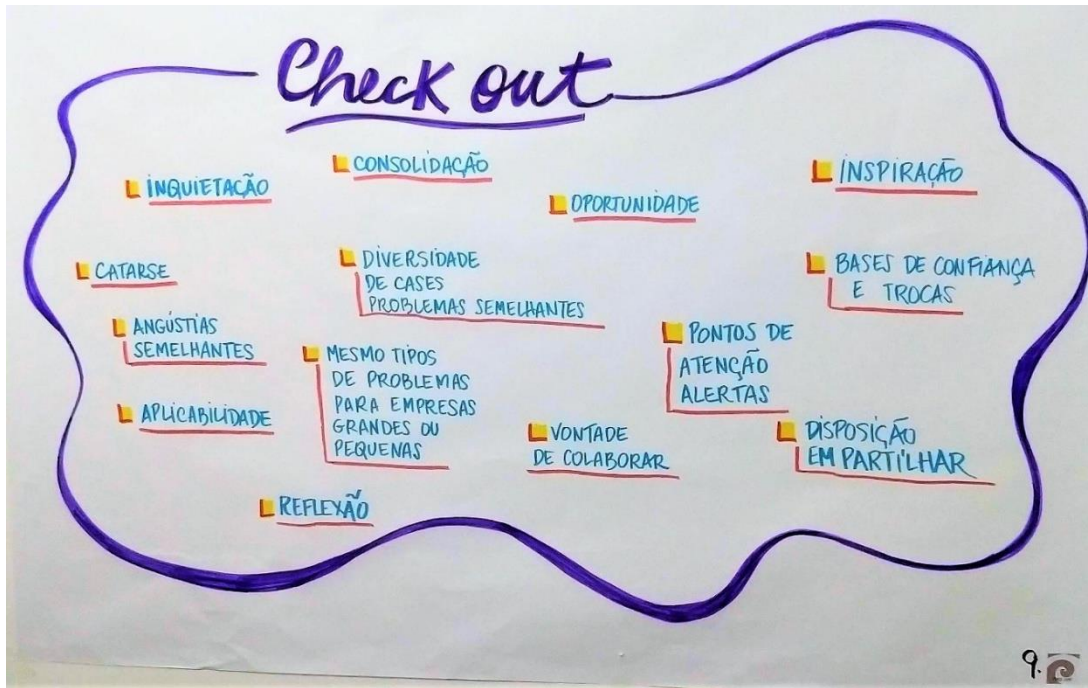 Check out
INQUIETAÇÃO
CONSOLIDAÇÃO
OPORTUNIDADE
INSPIRAÇÃO
CATARSE
DIVERSIDADE
DE CASES
PROBLEMAS SEMELHANTES
BASES DE CONFIANÇA
E TROCAS
ANGÚSTIAS
SEMELHANTES
MESMO TIPOS
DE PROBLEMAS
PARA EMPRESAS
GRANDES OU
PEQUENAS
PONTOS DE
ATENÇÃO
ALERTAS
APLICABILIDADE
VONTADE
DE COLABORAR
DISPOSIÇÃO
EM PARTILHAR
REFLEXÃO
9.